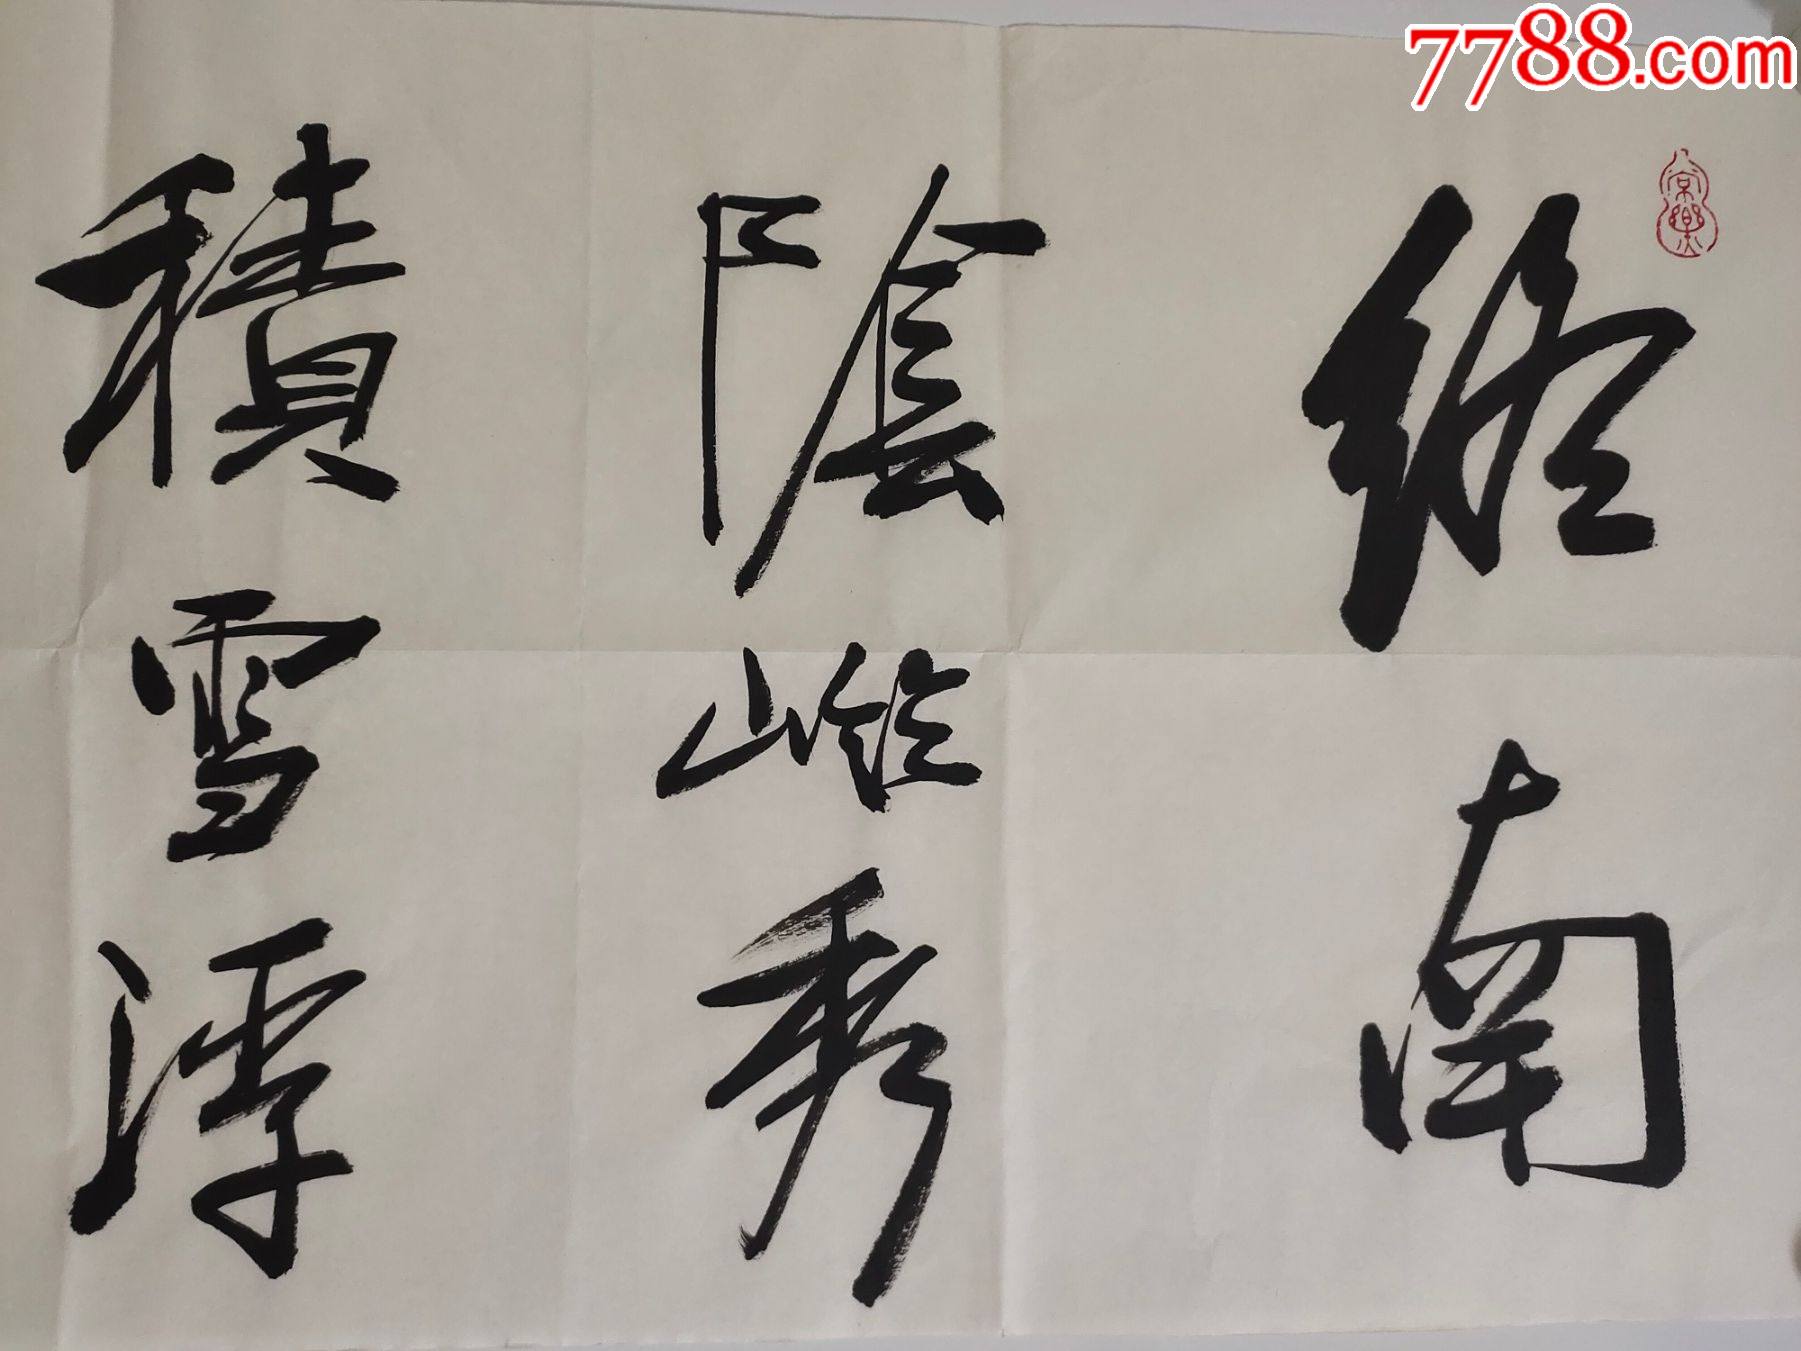 7788.com
終南
陰嶺秀
積雪浮